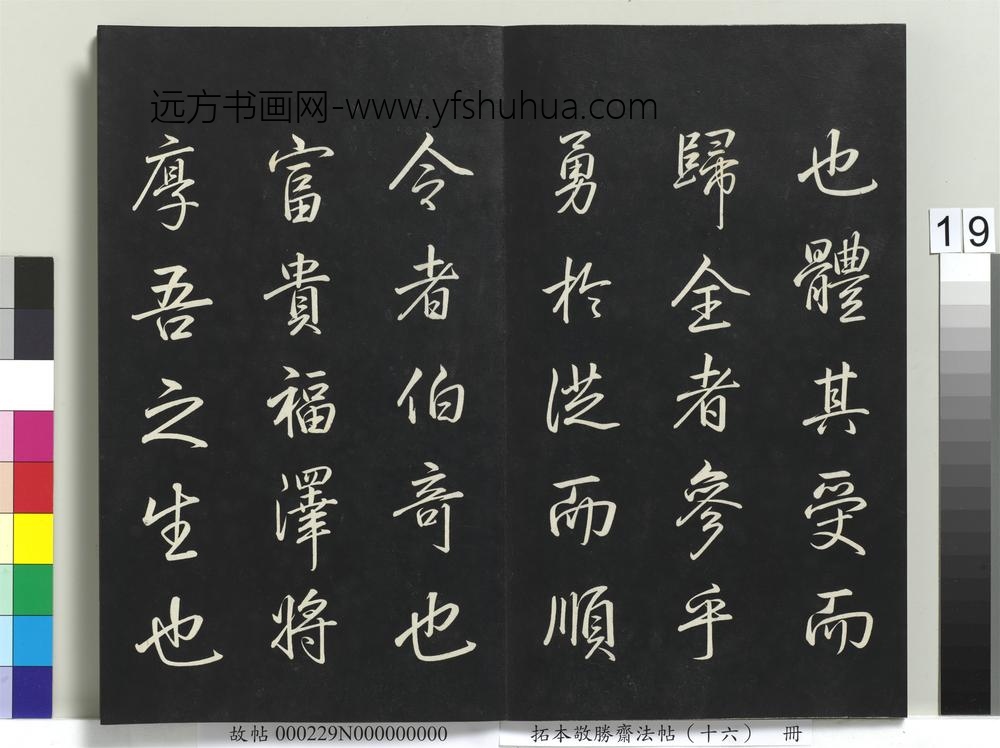 远方书画网-www.yfshuhua.com
也體其受而
歸全者參乎
勇於從而順
令者伯奇也
富貴福澤將
厚吾之生也
19
故帖 000229N000000000
拓本敬勝齋法帖（十六） 冊